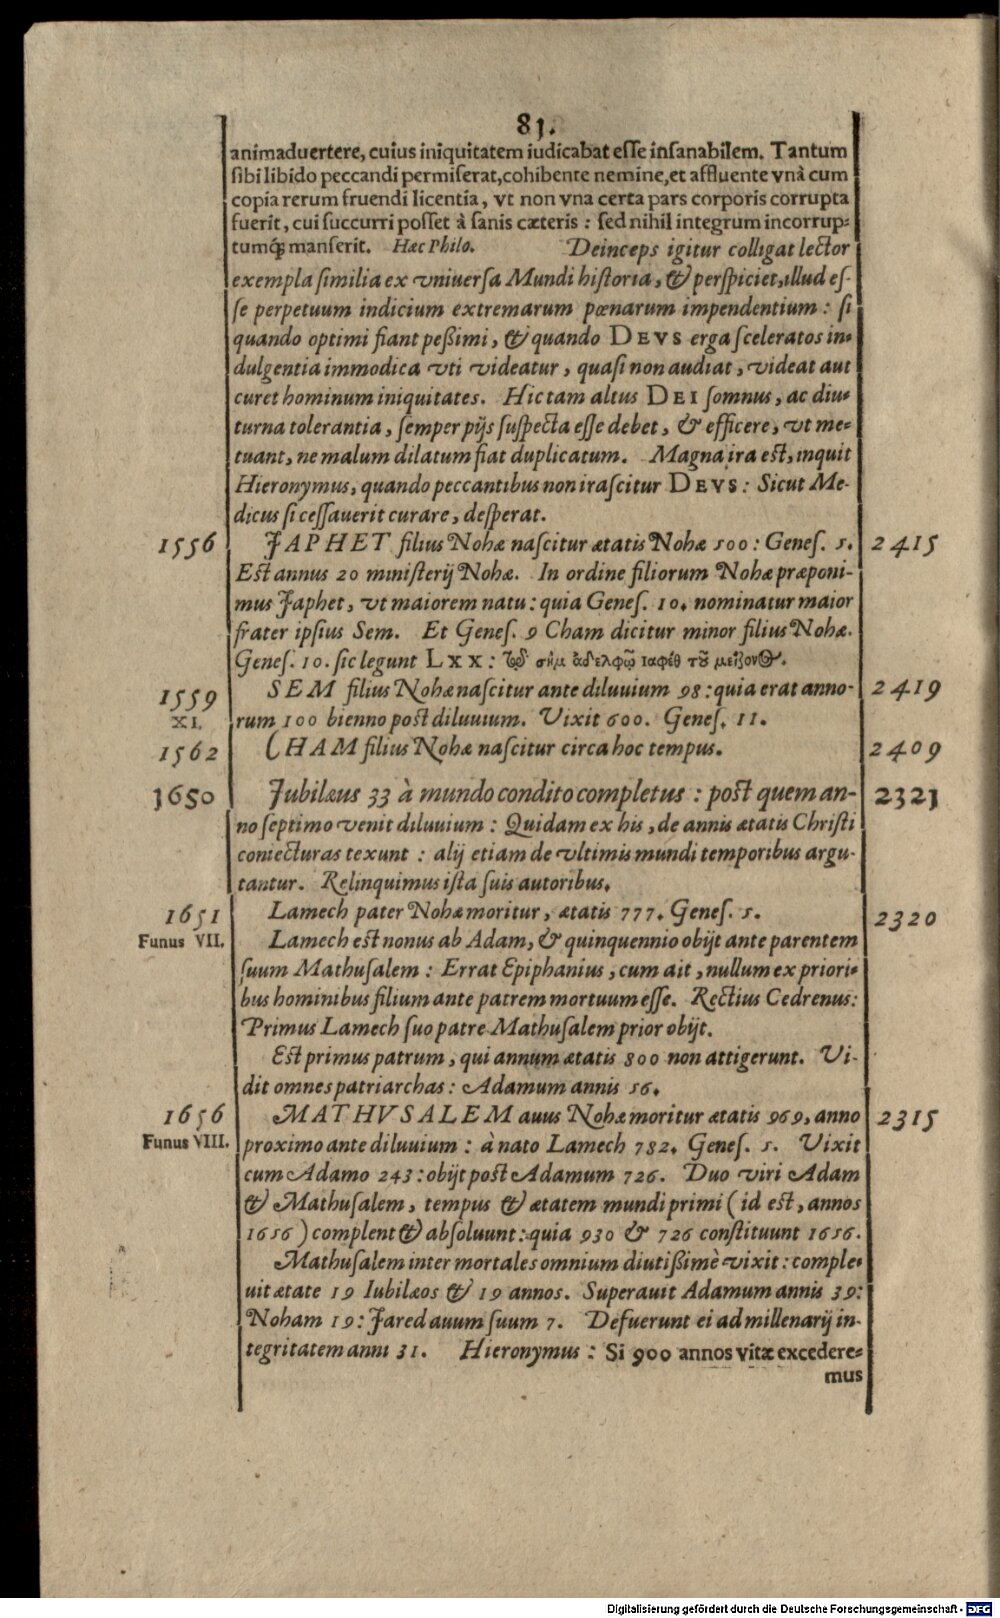 81.
animaduertere, cuius iniquitatem iudicabat eſſe inſanabilem. Tantum
ſibi libido peccandi permiſerat, cohibente nemine, et affluente vnà cum
copia rerum fruendi licentia, vt non vna certa pars corporis corrupta
fuerit, cui ſuccurri poſſet à ſanis cæteris : ſed nihil integrum incorrup-
tumq́; manſerit. Hæc Philo. Deinceps igitur colligat lector
exempla ſimilia ex vniuerſa Mundi hiſtoria, & perſpiciet, illud eſ-
ſe perpetuum indicium extremarum pœnarum impendentium : ſi
quando optimi fiant peßimi, & quando DEVS erga ſceleratos in-
dulgentia immodica vti videatur, quaſi non audiat, videat aut
curet hominum iniquitates. Hic tam altus DEI ſomnus, ac diu-
turna tolerantia, ſemper pijs ſuſpecta eſſe debet, & efficere, vt me-
tuant, ne malum dilatum fiat duplicatum. Magna ira eſt, inquit
Hieronymus, quando peccantibus non iraſcitur DEVS: Sicut Me-
dicus ſi ceſſauerit curare, deſperat.
1556 JAPHET filius Nohæ naſcitur ætatis Nohæ 500 : Geneſ. 5. 2415
Eſt annus 20 miniſterij Nohæ. In ordine filiorum Nohæ præponi-
mus Japhet, vt maiorem natu : quia Geneſ. 10. nominatur maior
frater ipſius Sem. Et Geneſ. 9 Cham dicitur minor filius Nohæ.
Geneſ. 10. ſic legunt LXX: σὴμ ἀδελφῶ ιαφέθ τοῦ μείζονος.
1559 SEM filius Nohæ naſcitur ante diluuium 98 : quia erat anno- 2419
XI. rum 100 bienno poſt diluuium. Vixit 600. Geneſ. 11.
1562 CHAM filius Nohæ naſcitur circa hoc tempus. 2409
1650 Jubilæus 33 à mundo condito completus : poſt quem an- 2321
no ſeptimo venit diluuium : Quidam ex his, de annis ætatis Chriſti
coniecturas texunt : alij etiam de vltimis mundi temporibus argu-
tantur. Relinquimus iſta ſuis autoribus.
1651 Lamech pater Nohæ moritur, ætatis 777. Geneſ. 5. 2320
Funus VII. Lamech eſt nonus ab Adam, & quinquennio obijt ante parentem
ſuum Mathuſalem : Errat Epiphanius, cum ait, nullum ex priori-
bus hominibus filium ante patrem mortuum eſſe. Rectius Cedrenus:
Primus Lamech ſuo patre Mathuſalem prior obijt.
Eſt primus patrum, qui annum ætatis 800 non attigerunt. Vi-
dit omnes patriarchas : Adamum annis 56.
1656 MATHVSALEM auus Nohæ moritur ætatis 969, anno 2315
Funus VIII. proximo ante diluuium : à nato Lamech 782. Geneſ. 5. Vixit
cum Adamo 243 : obijt poſt Adamum 726. Duo viri Adam
& Mathuſalem, tempus & ætatem mundi primi (id eſt, annos
1656) complent & abſoluunt : quia 930 & 726 conſtituunt 1656.
Mathuſalem inter mortales omnium diutißimè vixit : comple-
uit ætate 19 Iubilæos & 19 annos. Superauit Adamum annis 39:
Noham 19 : Jared auum ſuum 7. Defuerunt ei ad millenarij in-
tegritatem anni 31. Hieronymus : Si 900 annos vitæ excedere-
mus
Digitalisierung gefördert durch die Deutsche Forschungsgemeinschaft - DFG